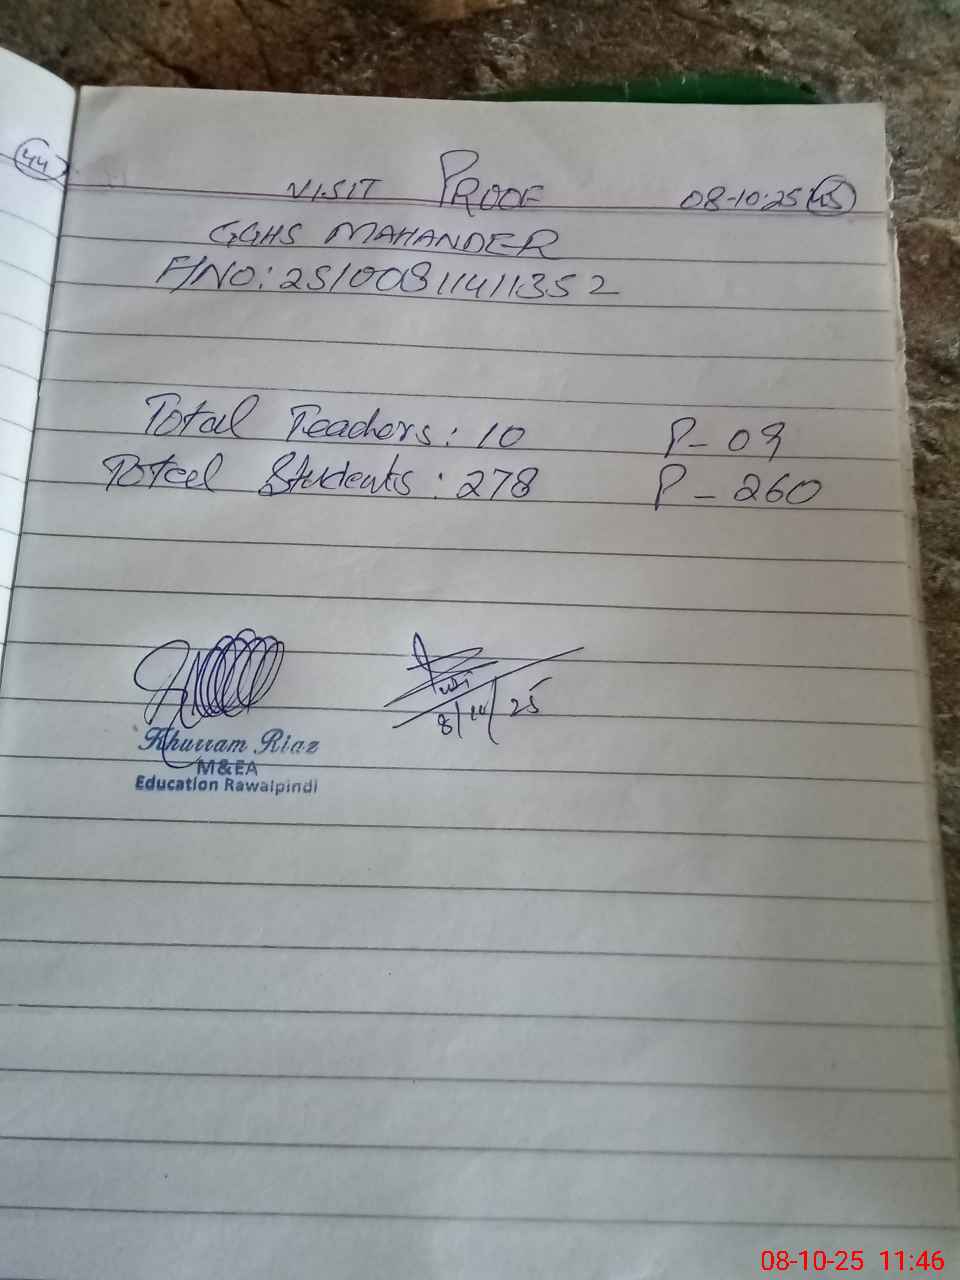 44
VISIT PROOF 08-10-25 45
GGHS MAHANDER
F/NO: 2510081141352
Total Teachers: 10 P- 09
Total Students: 278 P- 260
8/10/25
Khurram Riaz
M&EA
Education Rawalpindi
08-10-25 11:46